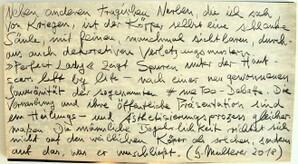 Neben anderen fragilen Werken, die ich sah
von Kriegen, ist der Körper selbst eine schlanke
Säule mit feinen manchmal sichtbaren, durch-
aus auch dekorativen Verletzungsmustern
Perfect Lady zeigt Spuren unter der Haut-
scars left by life - nach einer neu gewonnenen
Souveränität der sogenannten #metoo-Debatte. Die
und ihre öffentliche Präsentation sind
ein Heilungs- und Ästhetisierungsprozess gleicher-
maßen. Die männliche richtet sich
nicht auf den weiblichen Körper als solchen, sondern
auf das, was er ausschließt. (S. Müllerer 2018)